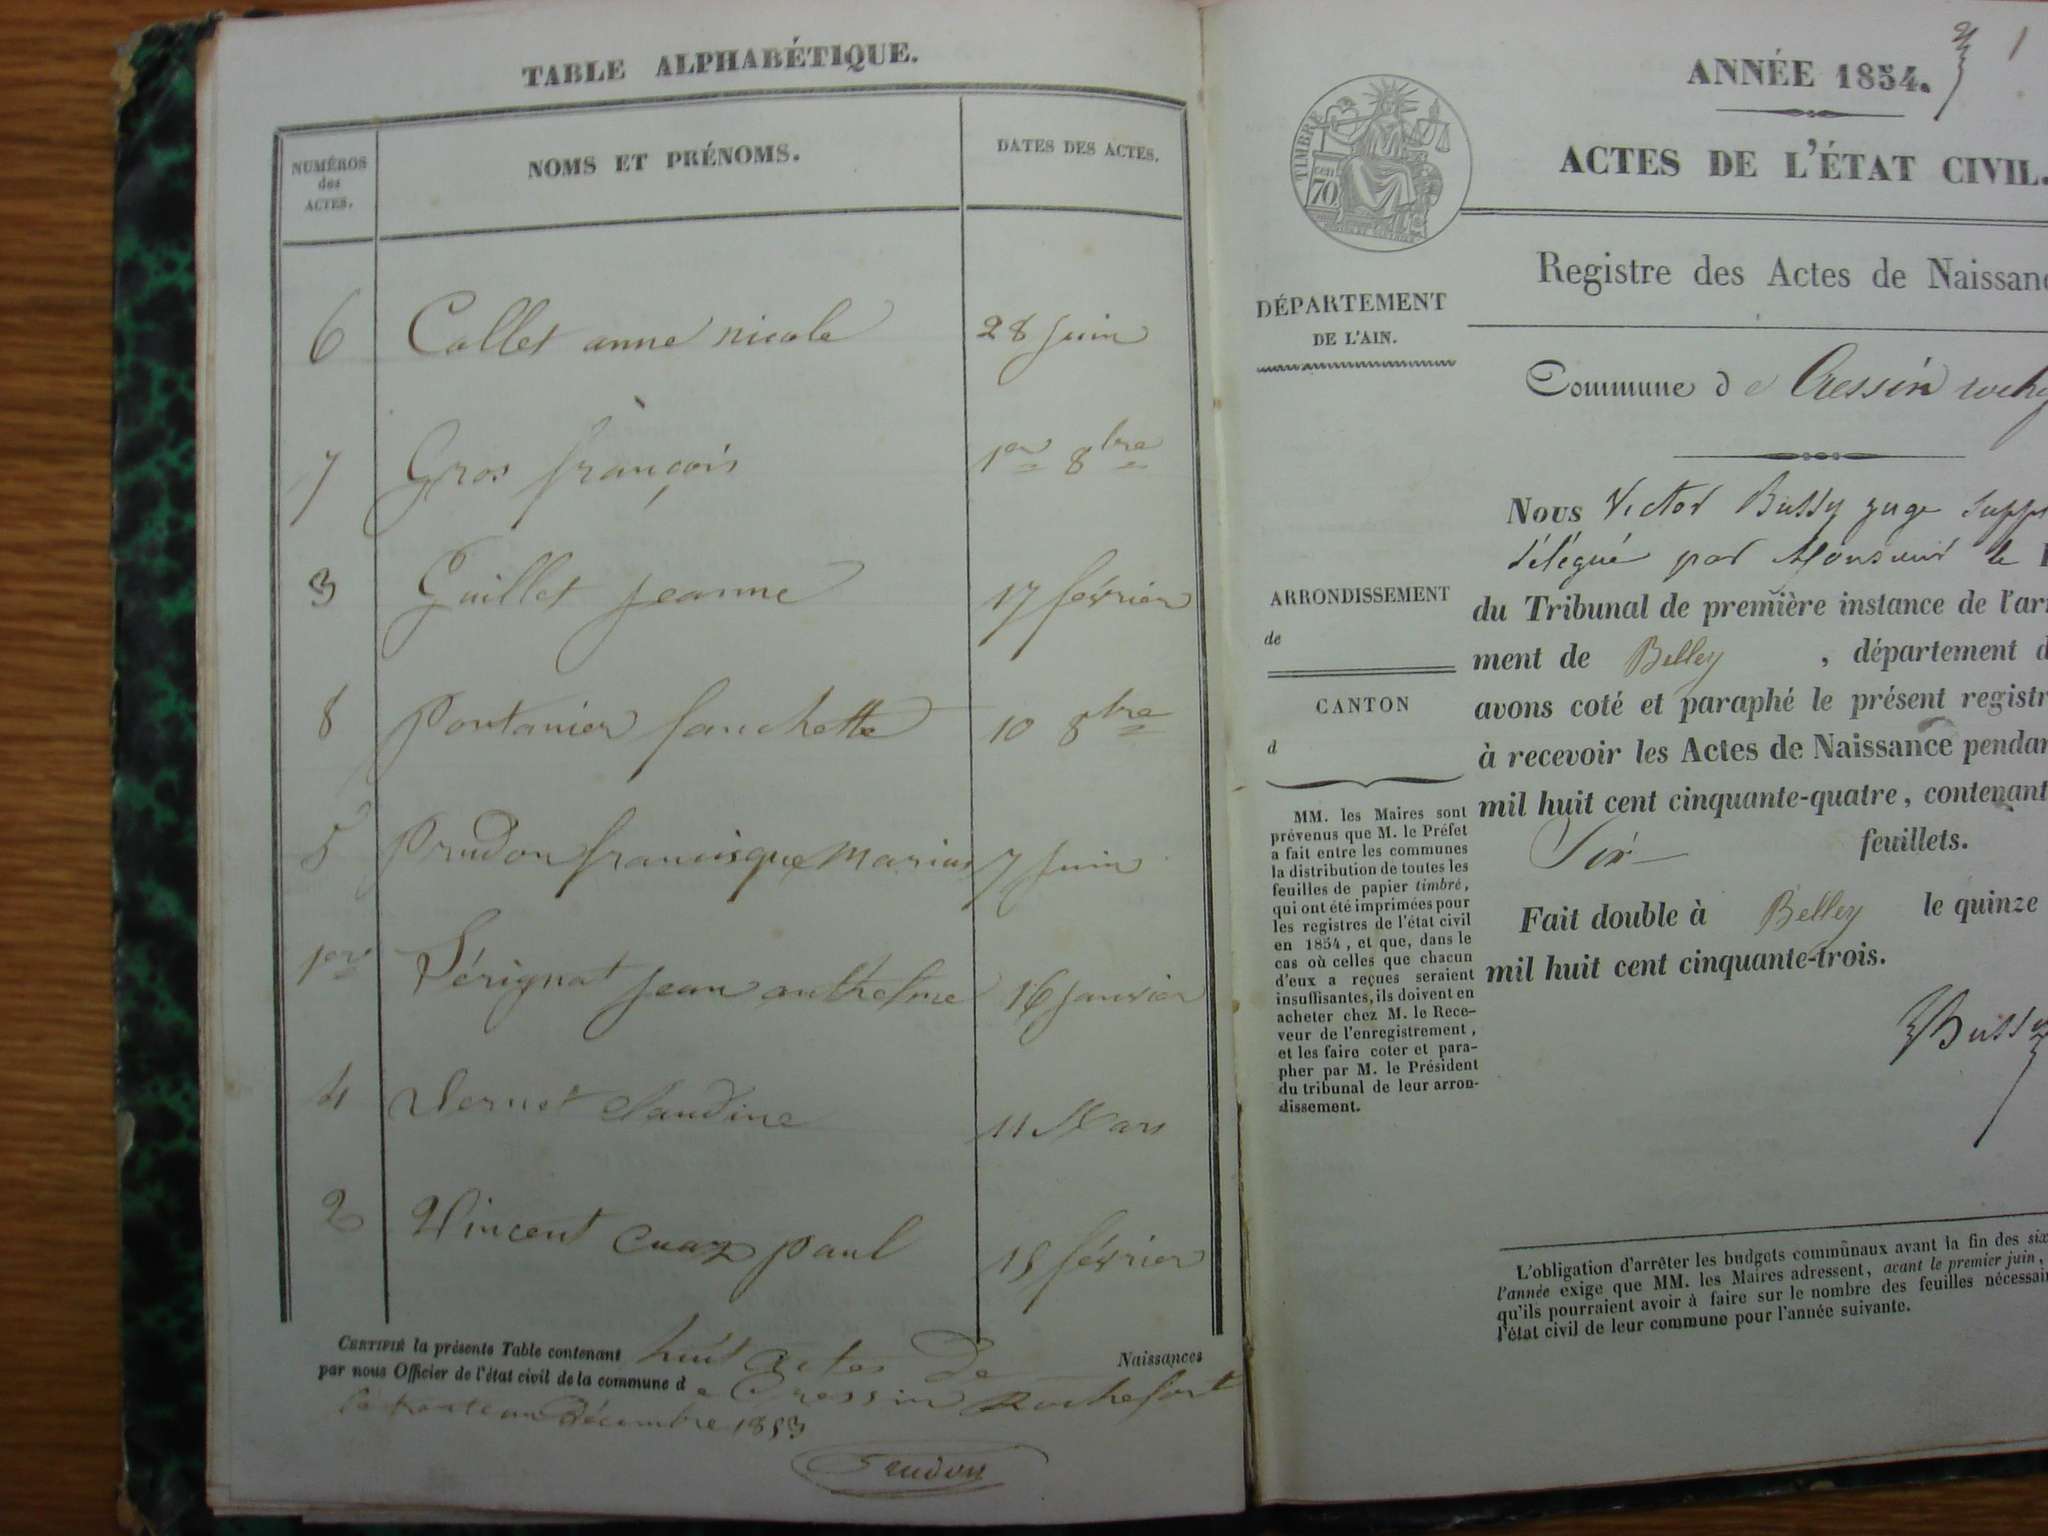 TABLE ALPHABÉTIQUE.
NUMÉROS
des
ACTES.
NOMS ET PRÉNOMS.
DATES DES ACTES.
6 Collet anne nicole 28 juin
7 Gros françois 1er 8bre
3 Guillet jeanne 17 février
8 Pontanier fanchette 10 8bre
5 Prudon francisque marius 7 juin
1er Sérignat jean anthelme 16 janvier
4 Vernet claudine 11 Mars
2 Vincent Cuaz paul 15 février
CERTIFIÉ la présente Table contenant huit actes De Naissances
par nous Officier de l'état civil de la commune de Cressin Rochefort
le trente un Décembre 1853
Prudon
1
ANNÉE 1854.
TIMBRE
cen
70
ACTES DE L'ÉTAT CIVIL.
Registre des Actes de Naissan
DÉPARTEMENT
DE L'AIN.
Commune de Cressin
Nous Victor Bussy juge supp
délégué par Monsieur le
ARRONDISSEMENT
de
du Tribunal de première instance de l'arr
ment de Belley, département d
CANTON
d
avons coté et paraphé le présent registr
à recevoir les Actes de Naissance pendan
mil huit cent cinquante-quatre, contenant
Six feuillets.
Fait double à Belley le quinze
mil huit cent cinquante-trois.
Bussy
MM. les Maires sont
prévenus que M. le Préfet
a fait entre les communes
la distribution de toutes les
feuilles de papier timbré,
qui ont été imprimées pour
les registres de l'état civil
en 1854, et que, dans le
cas où celles que chacun
d'eux a reçues seraient
insuffisantes, ils doivent en
acheter chez M. le Rece-
veur de l'enregistrement,
et les faire coter et para-
pher par M. le Président
du tribunal de leur arron-
dissement.
L'obligation d'arrêter les budgets communaux avant la fin des six
l'année exige que MM. les Maires adressent, avant le premier juin,
qu'ils pourraient avoir à faire sur le nombre des feuilles nécessai
l'état civil de leur commune pour l'année suivante.